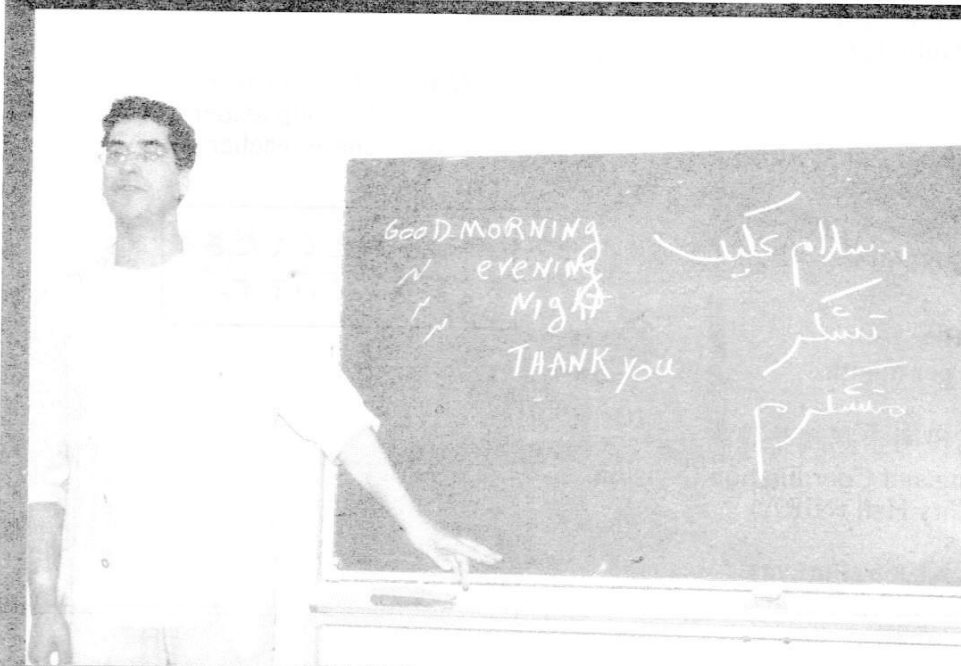 GOOD MORNING
〃 evening
〃 Night
〃
THANK you
سلام علیک
تشکر
متشکرم